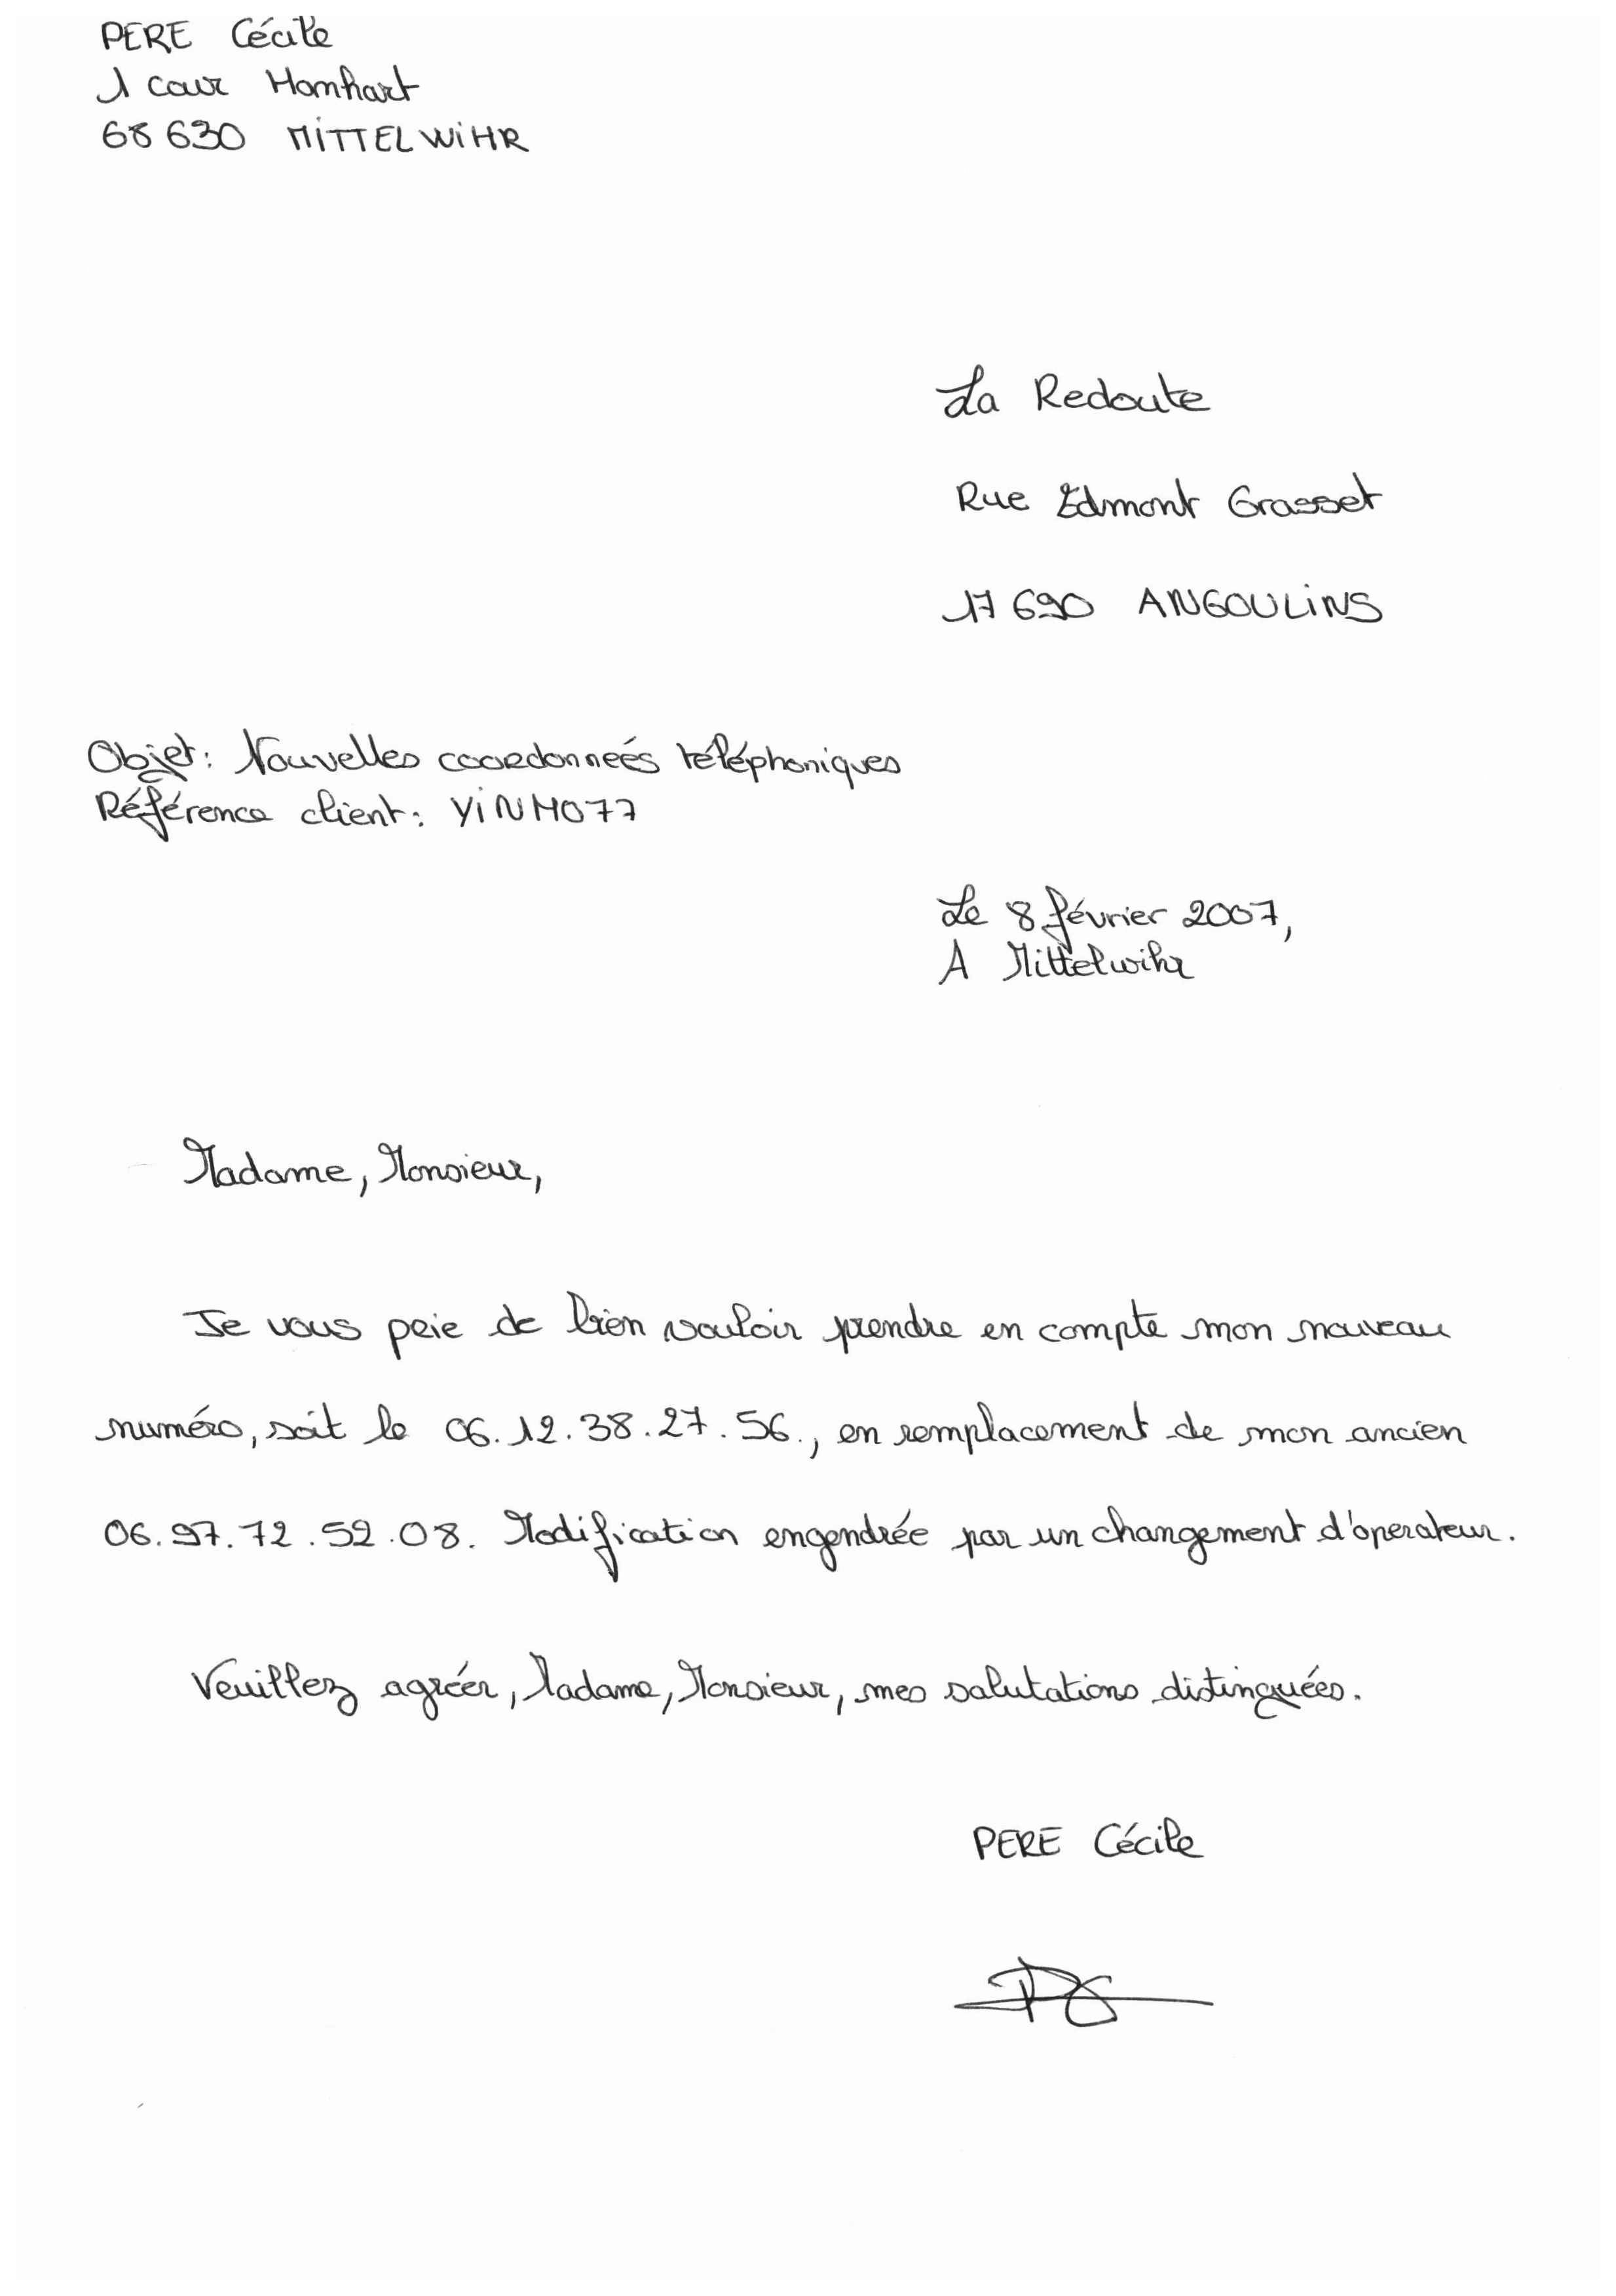 PERE Cécile
1 cour Homhart
68 630 MITTELWIHR
La Redoute
Rue Edmont Grasset
17 690 ANGOULINS
Objet: Nouvelles coordonneés téléphoniques
Référence client: YINMO77
Le 8 février 2007,
A Mittelwihr
Madame, Monsieur,
Je vous prie de bien vouloir prendre en compte mon nouveau
numéro, soit le 06.12.38.27.56., en remplacement de mon ancien
06.97.72.52.08. Modification engendrée par un changement d'operateur.
Veuillez agréer, Madame, Monsieur, mes salutations distinguées.
PERE Cécile